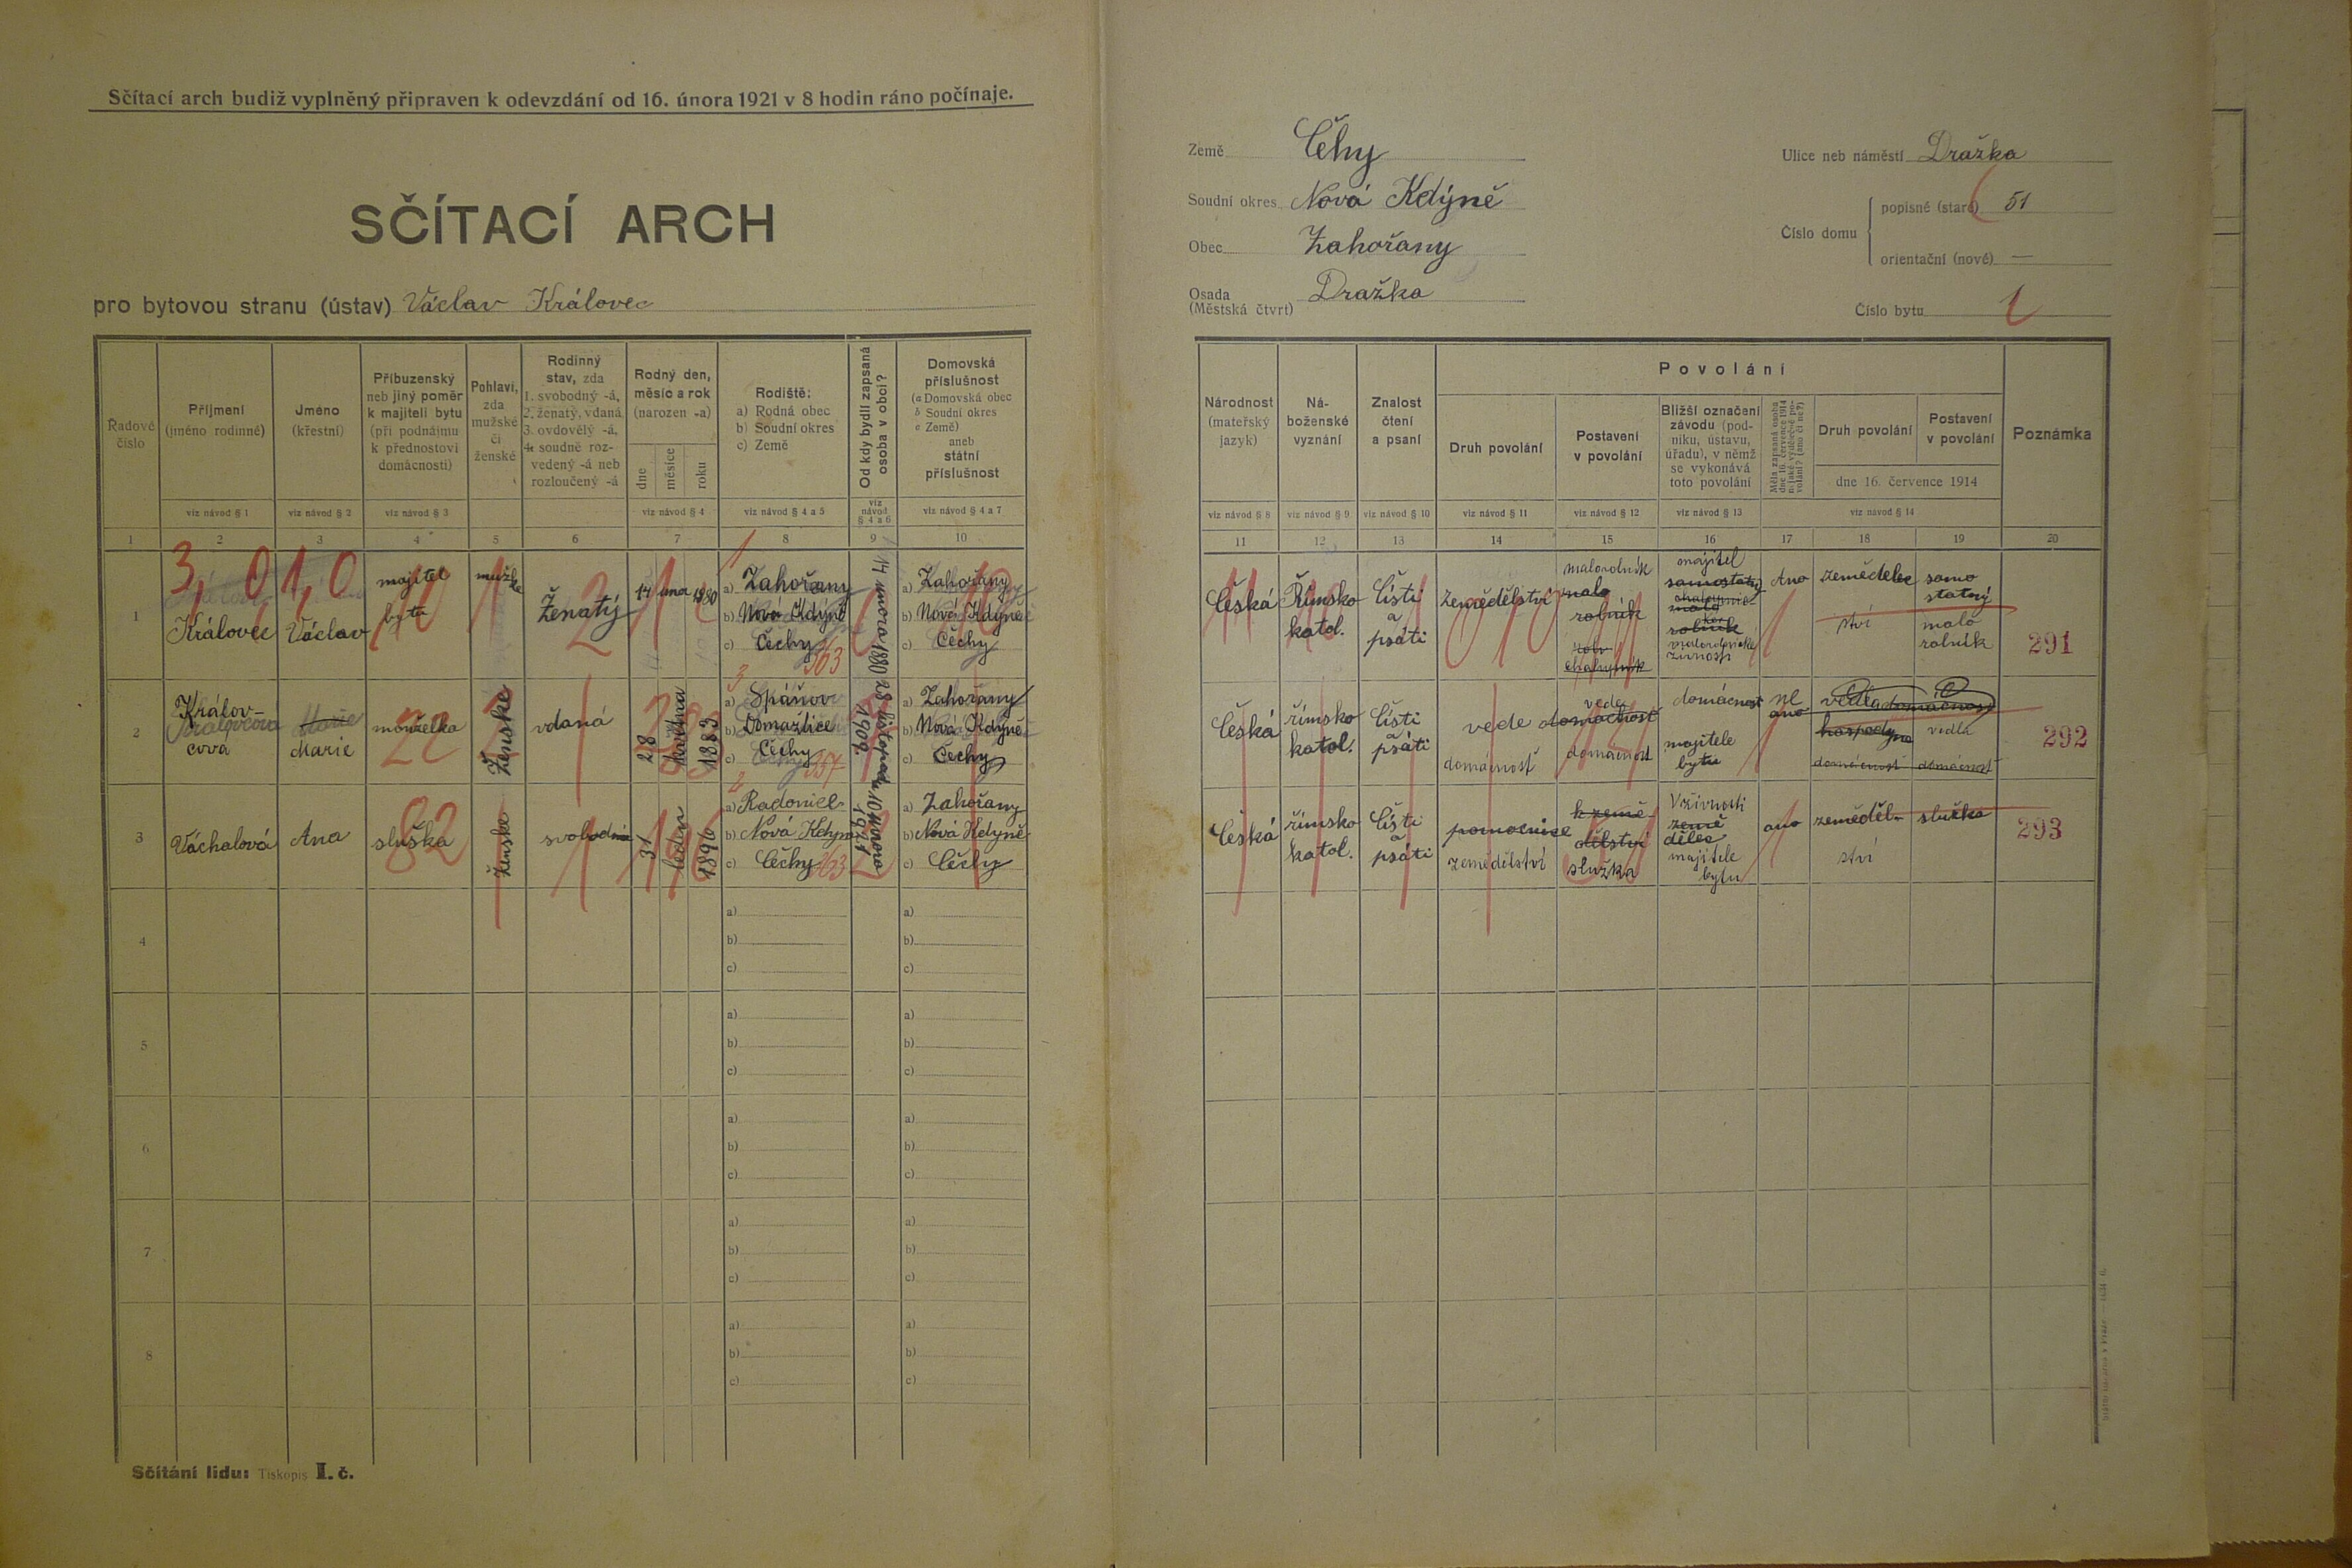 Sčítací arch budiž vyplněný připraven k odevzdání od 16. února 1921 v 8 hodin ráno počínaje.
SČÍTACÍ ARCH
pro bytovou stranu (ústav) Václav Královec
Země Čehy
Soudní okres Nová Kdýně
Obec Zahořany
Osada Dražka
(Městská čtvrt)
Ulice neb náměstí Dražka
Číslo domu
popisné (staré) 51
orientační (nové) —
Číslo bytu 1
Řadové číslo
Příjmení
(jméno rodinné)
Jméno
(křestní)
Příbuzenský
neb jiný poměr
k majiteli bytu
(při podnájmu
k přednostovi
domácnosti)
Pohlaví,
zda
mužské
či
ženské
Rodinný
stav, zda
1. svobodný -á,
2. ženatý, vdaná
3. ovdovělý -á,
4. soudně roz-
vedený -á neb
rozloučený -á
Rodný den,
měsíc a rok
(narozen -a)
dne
měsíce
roku
Rodiště:
a) Rodná obec
b) Soudní okres
c) Země
Od kdy bydlí zapsaná
osoba v obci?
Domovská
příslušnost
(a Domovská obec
b Soudní okres
c Země)
aneb
státní
příslušnost
viz návod § 1
viz návod § 2
viz návod § 3
viz návod § 4
viz návod § 4 a 5
viz
návod
§ 4 a 6
viz návod § 4 a 7
1 2 3 4 5 6 7 8 9 10
Národnost
(mateřský
jazyk)
Ná-
boženské
vyznání
Znalost
čtení
a psaní
Povolání
Druh povolání
Postavení
v povolání
Bližší označení
závodu (pod-
niku, ústavu,
úřadu), v němž
se vykonává
toto povolání
Měla zapsaná osoba
dne 16. července 1914
Druh povolání
Postavení
v povolání
dne 16. července 1914
Poznámka
viz návod § 8
viz návod § 9
viz návod § 10
viz návod § 11
viz návod § 12
viz návod § 13
viz návod § 14
11 12 13 14 15 16 17 18 19 20
1
3, 0 1, 0
Královec
Václav
majitel
bytu
mužské
Ženatý
14 února 1880
a) Zahořany
b) Nová Kdyně
c) Čechy
363
14 února 1880
a) Zahořany
b) Nová Kdyně
c) Čechy
Česká
Římsko
katol.
Čísti
a
psáti
Zemědělství
malorolník
malo
rolník
chalupník
majitel
samostatný
malo
rolník
Ano
zemědělec
ství
samo
statný
malo
rolník
291
2
Králov-
cová
Marie
manželka
ženské
vdaná
28 května 1883
a) Spáňov
b) Domažlice
c) Čechy
357
28 listopadu 1909.
a) Zahořany
b) Nová Kdyně
c) Čechy
Česká
římsko
katol.
Čísti
a
psáti
vede
domácnosť
vede
domácnost
domácnost
domácnost
majitele
bytu
ne
ano
vedla domácnost
hospodyně
domácnosť
vedla
domácnosť
292
3
Váchalová
Ana
služka
82
ženské
svobodná
31 leden 1896
a) Radonice
b) Nová Kdyně
c) Čechy
363
10 února 1921
a) Zahořany
b) Nová Kdyně
c) Čechy
Česká
římsko
katol.
Čísti
a
psáti
pomocnice
zemědělství
k země-
dělství
služka
V živnosti
země
dělec
majitele
bytu
ano
zeměděl-
ství
služka
293
4
a)
b)
c)
a)
b)
c)
5
a)
b)
c)
a)
b)
c)
6
a)
b)
c)
a)
b)
c)
7
a)
b)
c)
a)
b)
c)
8
a)
b)
c)
a)
b)
c)
Sčítání lidu: Tiskopis I. č.